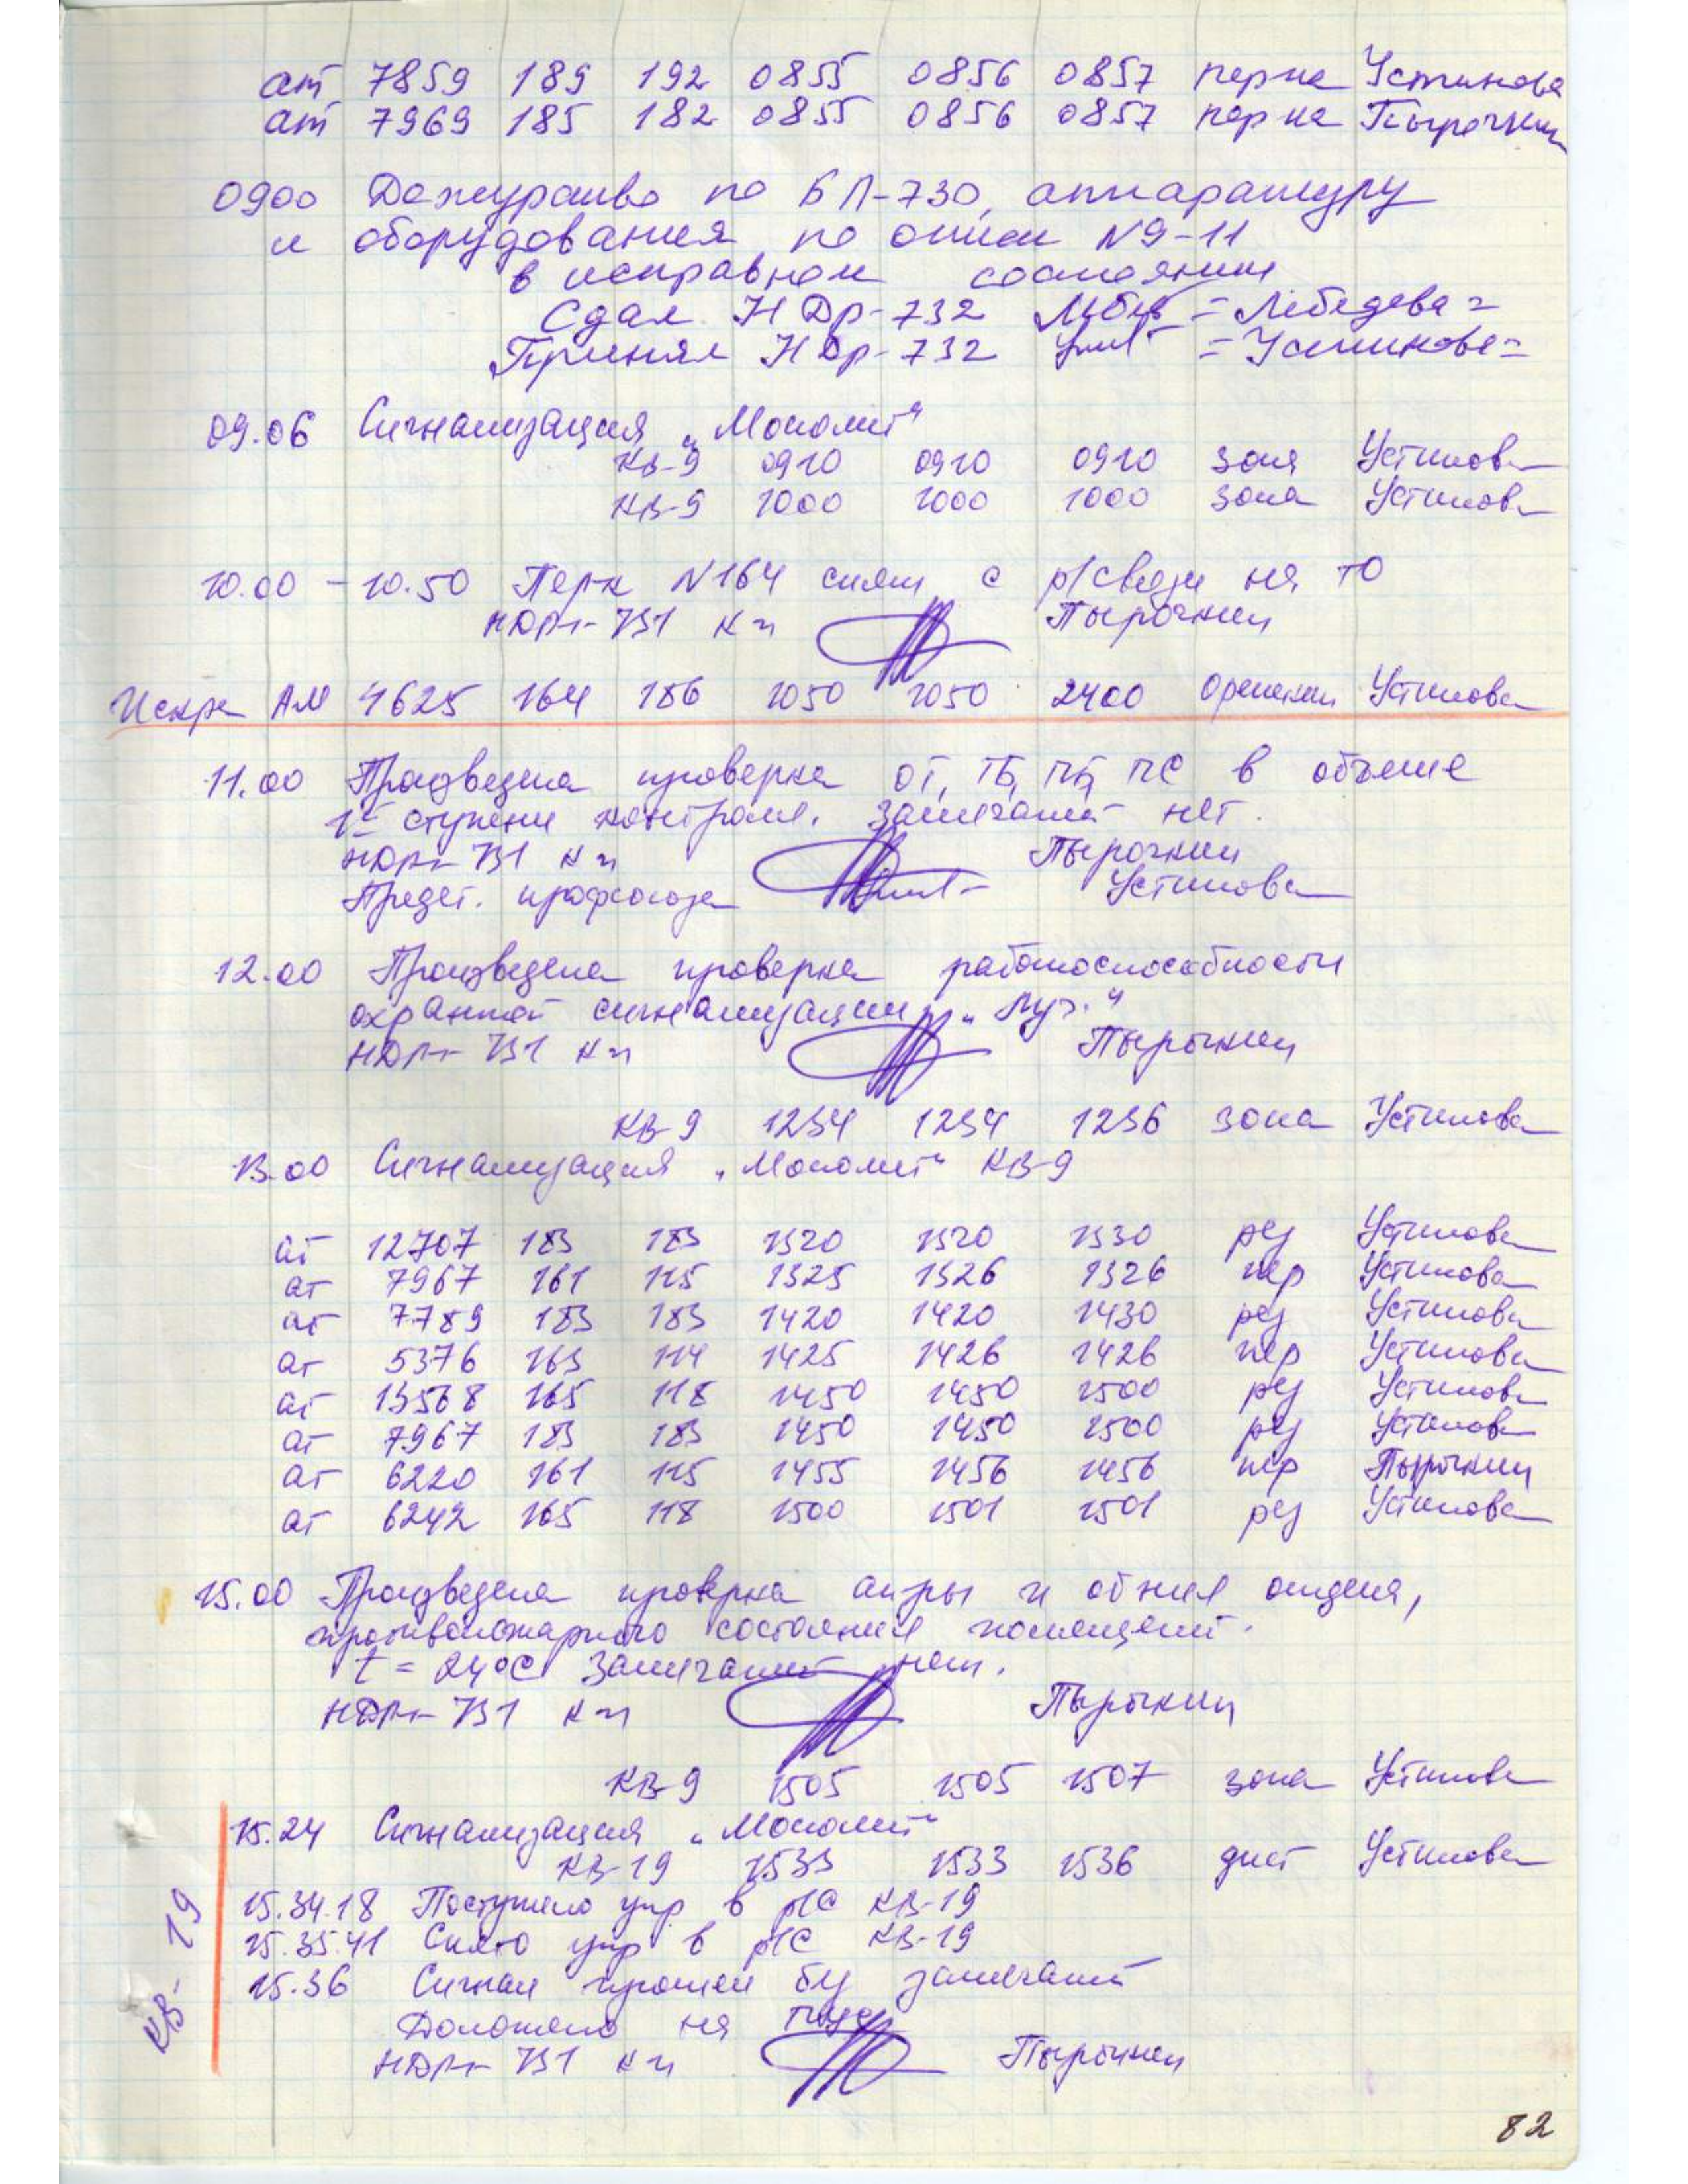 ат 7859 189 192 0855 0856 0857 перна Устинова
ат 7969 185 182 0855 0856 0857 перна Пырочкин
0900 Дежурство по БП-730, аппаратуру
и оборудования по описи №9-11
в исправном состоянии
Сдал НДр-732 = Лебедева =
Принял НДр-732 = Устинова =
09.06 Сигнализация „Монолит“
КВ-9 0910 0910 0910 зона Устинова
КВ-9 1000 1000 1000 зона Устинова
10.00 - 10.50 Перк №164 снят с р/связи на ТО
НДРп-731 Пырочкин
Искра АМ 4625 164 186 1050 1050 2400 Устинова
11.00 Произведена проверка ОТ, ТБ, ПБ, ПС в объёме
1й ступени контроля. Замечаний нет.
НДРп-731 Пырочкин
Предст. профсоюза Устинова
12.00 Произведена проверка работоспособности
охранной сигнализации „Луч.“
НДРп-731 Пырочкин
КВ-9 1254 1254 1256 зона Устинова
13.00 Сигнализация „Монолит“ КВ-9
ат 12707 183 183 1320 1320 1330 рез Устинова
ат 7967 161 115 1325 1326 1326 пер Устинова
ат 7789 183 183 1420 1420 1430 рез Устинова
ат 5376 163 114 1425 1426 1426 пер Устинова
ат 13568 165 118 1450 1450 1500 рез Устинова
ат 7967 183 183 1450 1450 1500 рез Устинова
ат 6220 161 115 1455 1456 1456 пер Пырочкин
ат 6242 165 118 1500 1501 1501 рез Устинова
15.00 Произведена проверка ап-ры и
противопожарного состояния помещений.
t = 24°С Замечаний нет.
НДРп-731 Пырочкин
КВ-9 1505 1505 1507 зона Устинова
15.24 Сигнализация „Монолит“
КВ-19 1533 1533 1536 дист Устинова
КВ-19
15.34.18 Поступило упр в р/с КВ-19
15.35.41 Снято упр в р/с КВ-19
15.36 Сигнал прошел без замечаний
Доложено на
НДРп-731 Пырочкин
82